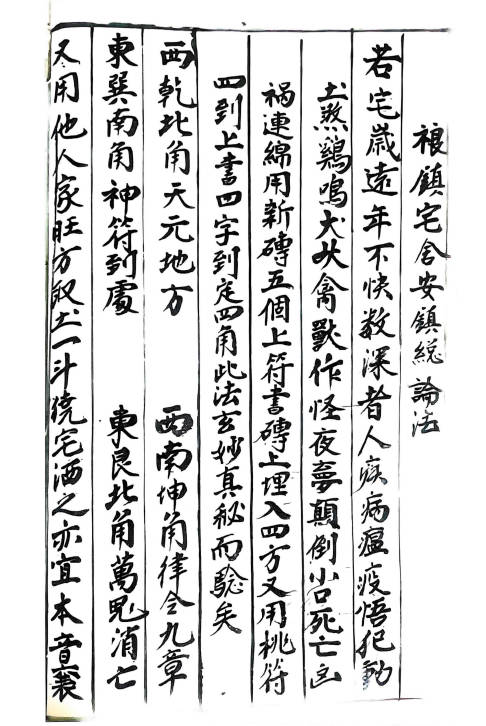 禳鎮宅舍安鎮総論法
若宅歲遠年不快数深者人疾病瘟疫悟犯動
土煞鷄鳴犬吠禽獸作怪夜夢顛倒小口死亡凶
禍連綿用新磚五個上符書磚上埋入四方又用桃符
四到上書四字到定四角此法玄妙真秘而驗矣
西乾北角天元地方　西南坤角律令九章
東巽南角神符到處　東艮北角萬鬼消亡
又用他人家旺方取土一斗繞宅洒之亦宜本音襄